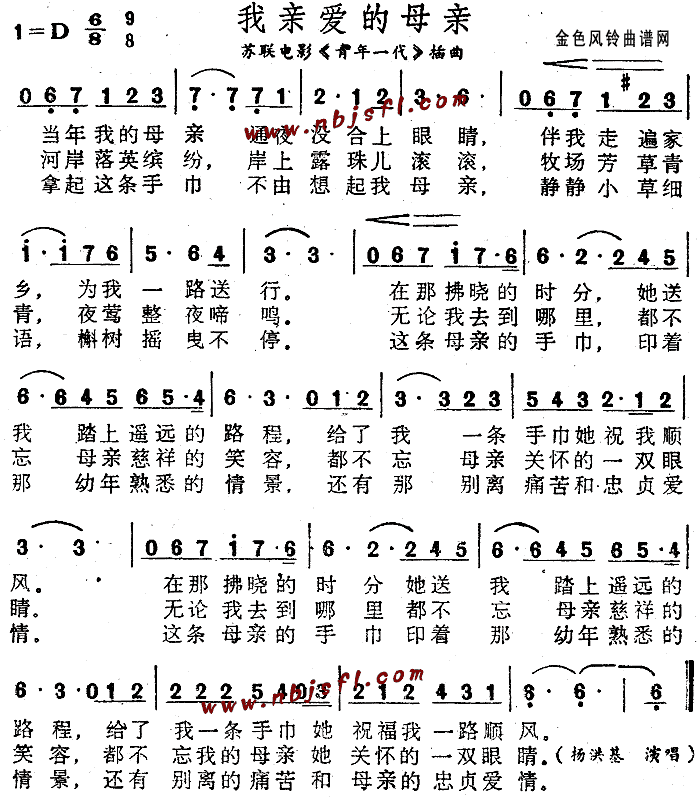 我亲爱的母亲
1=D 6/8 9/8
苏联电影《青年一代》插曲
金色风铃曲谱网
0 6 7 1 2 3 | 7 · 7 7 1 | 2 · 1 2 | 3 · 6 | 0 6 7 1 #2 3 |
www.nbjsfl.com
当年我的母亲 通夜没合上眼睛， 伴我走遍家
河岸落英缤纷， 岸上露珠儿滚滚， 牧场芳草青
拿起这条手巾 不由想起我母亲， 静静小草细
1 · 1 7 6 | 5 · 6 4 | 3 · 3 · | 0 6 7 1 7 · 6 | 6 · 2 · 2 4 5 |
乡， 为我一路送行。 在那拂晓的时分，她送
青， 夜莺整夜啼鸣。 无论我去到哪里，都不
语， 槲树摇曳不停。 这条母亲的手巾，印着
6 · 6 4 5 6 5 · 4 | 6 · 3 · 0 1 2 | 3 · 3 2 3 | 5 4 3 2 · 1 2 |
我 踏上遥远的路程，给了我 一条手巾她祝我顺
忘 母亲慈祥的笑容，都不忘 母亲关怀的一双眼
那 幼年熟悉的情景，还有那 别离痛苦和忠贞爱
3 · 3 · | 0 6 7 1 7 · 6 | 6 · 2 · 2 4 5 | 6 · 6 4 5 6 5 · 4 |
风。 在那拂晓的时分她送我 踏上遥远的
睛。 无论我去到哪里都不忘 母亲慈祥的
情。 这条母亲的手巾印着那 幼年熟悉的
6 · 3 · 0 1 2 | 2 2 2 5 4 0 3 | 2 1 2 4 3 1 | 6 · 6 · | 6 ·
www.nbjsfl.com
路程，给了我一条手巾她 祝福我一路顺风。
笑容，都不忘我的母亲她 关怀的一双眼睛。（杨洪基 演唱）
情景，还有别离的痛苦和 母亲的忠贞爱情。